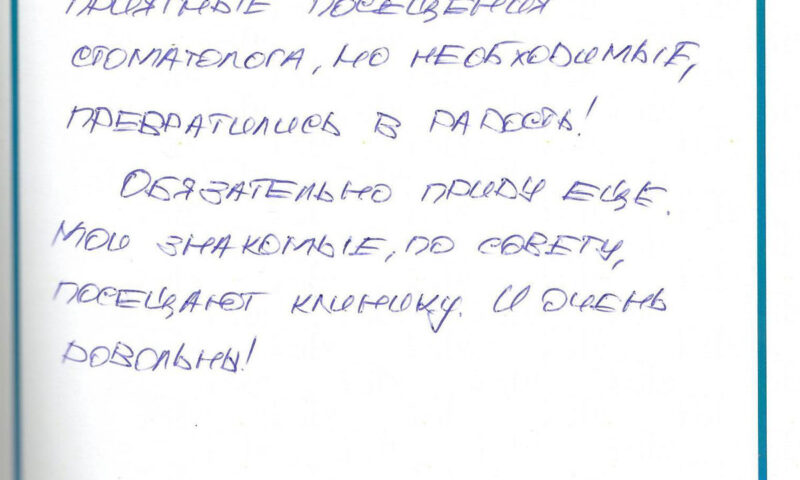 приятные посещения
стоматолога, но необходимые,
превратились в радость!
Обязательно приду еще.
Мои знакомые, по совету,
посещают клинику. И очень
довольны!